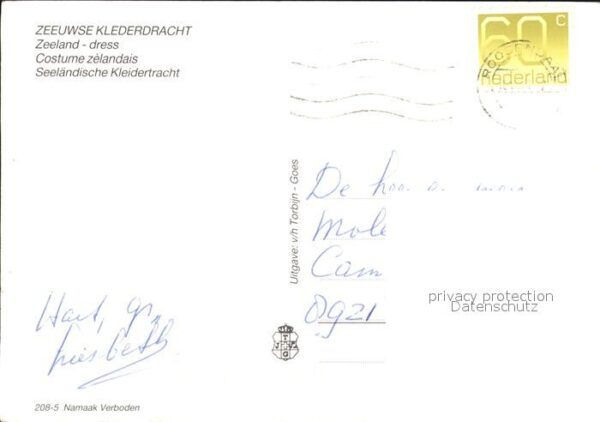 ZEEUWSE KLEDERDRACHT
Zeeland - dress
Costume zélandais
Seeländische Kleidertracht
60 c
nederland
ROOSENDAAL
Uitgave: v/h Torbijn - Goes
De
Mole
Cam
8921
privacy protection
Datenschutz
Hart, gr,
Liesbeth
208-5 Namaak Verboden